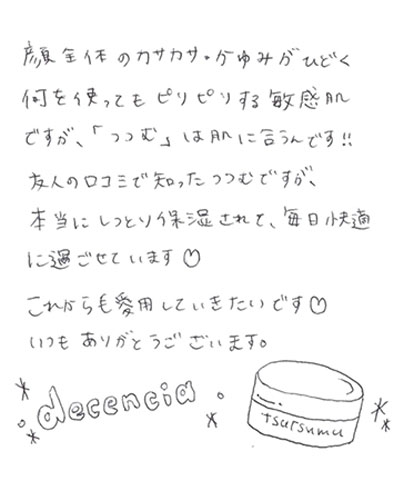 顔全体のカサカサ・かゆみがひどく
何を使ってもピリピリする敏感肌
ですが、「つつむ」は肌に合うんです!!
友人の口コミで知ったつつむですが、
本当にしっとり保湿されて、毎日快適
に過ごせています♡
これからも愛用していきたいです♡
いつもありがとうございます。
decencia
tsutsumu